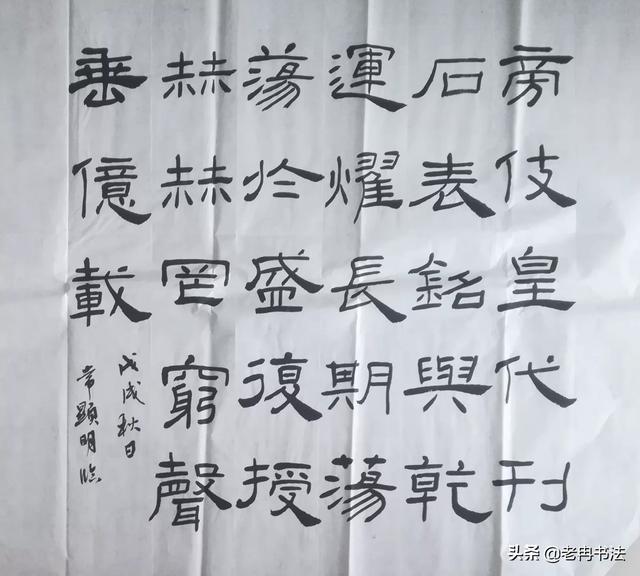 旁伎皇代刊
石表銘與乾
運燿長期蕩
蕩於盛復授
赫赫罔窮聲
垂億載
戊戌秋日
常顯明临
头条 @老冉书法